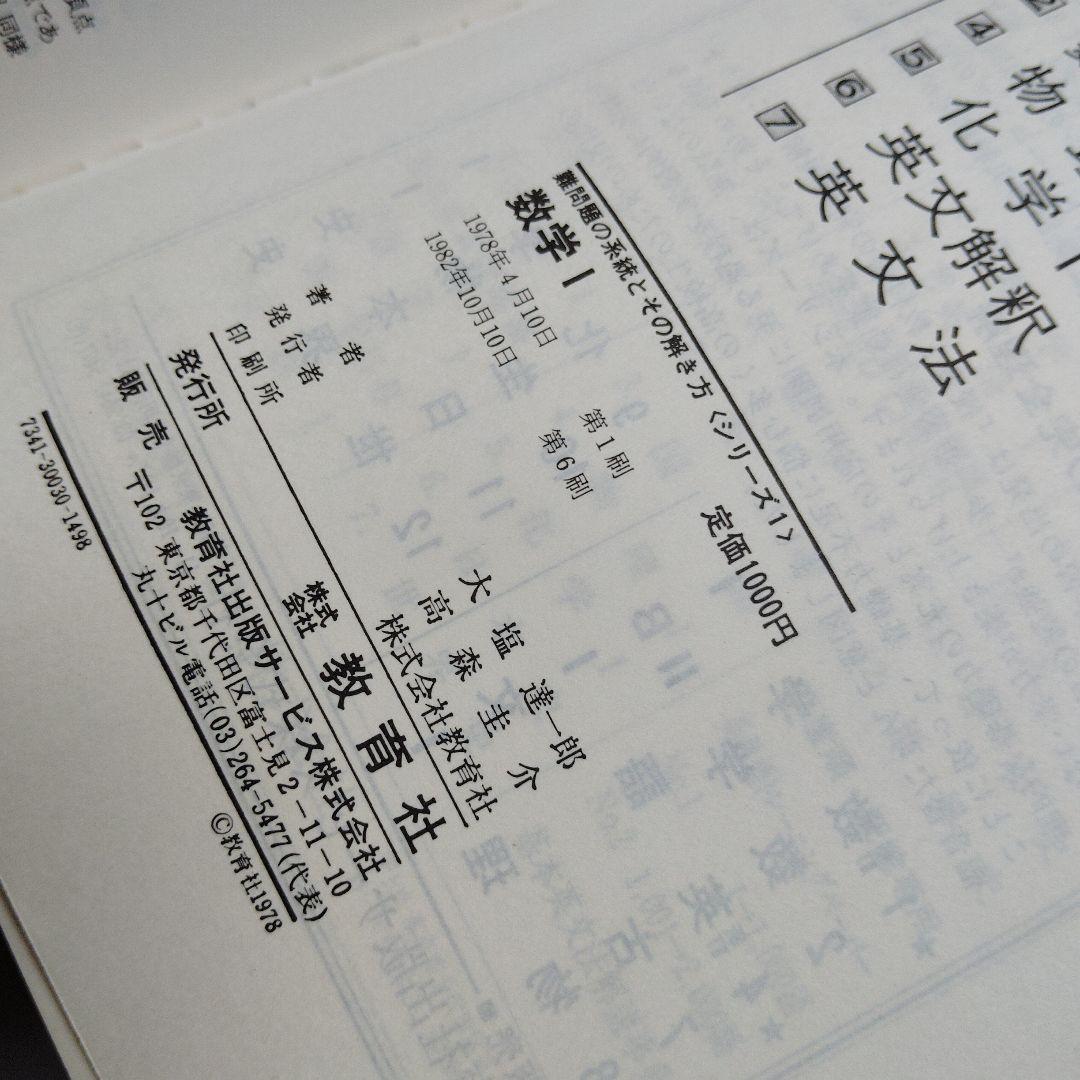 頂点
であ
同様
2
4 物
5 化学 I
6 英文解釈
7 英文法
難問題の系統とその解き方〈シリーズ1〉
数学 I
定価1000円
1978年4月10日 第1刷
1982年10月10日 第6刷
著者 大塩達一郎
発行者 高森圭介
印刷所 株式会社教育社
発行所 株式会社 教育社
販売 教育社出版サービス株式会社
〒102 東京都千代田区富士見2-11-10
丸十ビル電話(03)264-5477(代表)
7341-30030-1498
©教育社1978